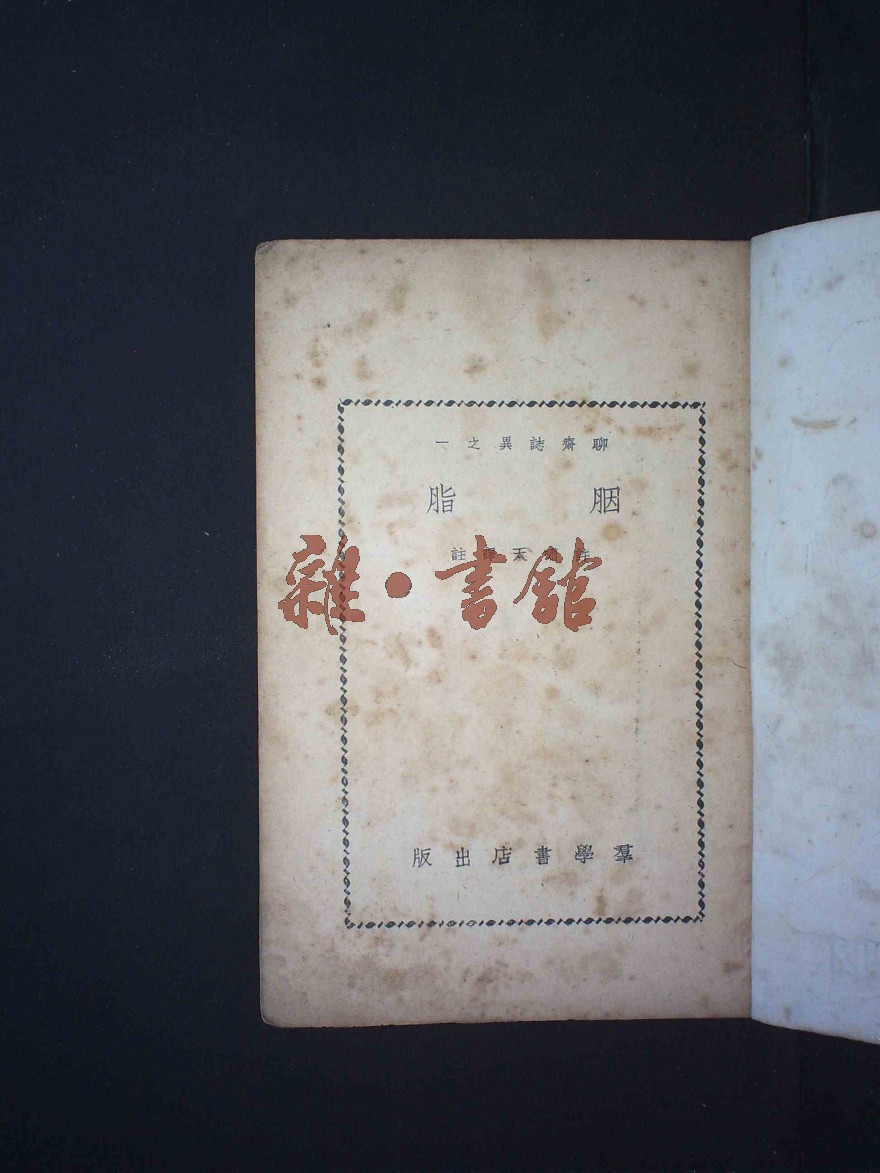 聊齋誌異之一
胭脂
天 註
雜・書館
羣學書店出版